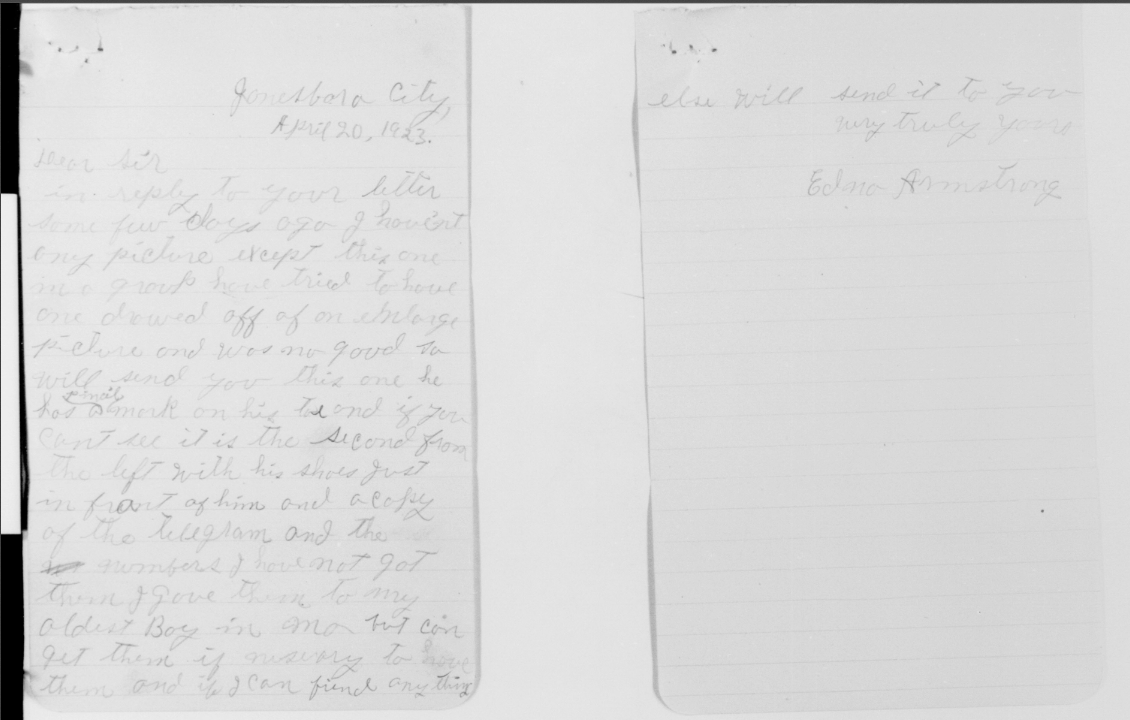 Jonesboro City,
April 20, 1923.
Dear Sir
in reply to your letter
some few days ago I havent
any picture except this one
in a group have tried to have
one drawed off of an enlarge
picture and was no good so
will send you this one he
has a small mark on his tie and if you
cant see it is the second from
the left with his shoes just
in front of him and a copy
of the telegram and the
numbers I have not got
them I gave them to my
oldest Boy in Mo but can
get them if nessary to have
them and if I can fiend anything
else will send it to you
very truly yours
Edna Armstrong